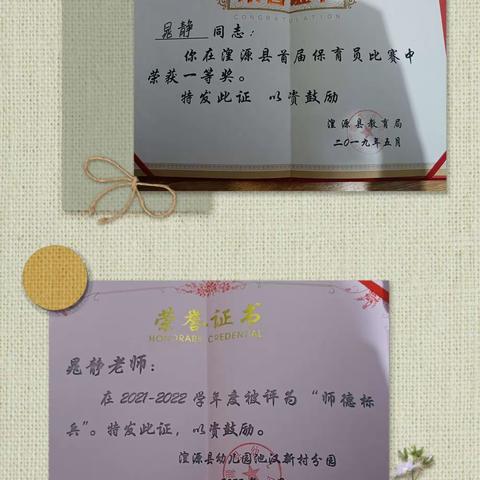 荣誉证书
CONGRATULATION
晁静 同志：
你在湟源县首届保育员比赛中
荣获一等奖。
特发此证 以资鼓励
湟源县教育局
二〇一九年五月
荣誉证书
HONORARY CREDENTIAL
晁静老师：
在2021-2022学年度被评为“师德标
兵”。特发此证，以资鼓励。
湟源县幼儿园池汉新村分园